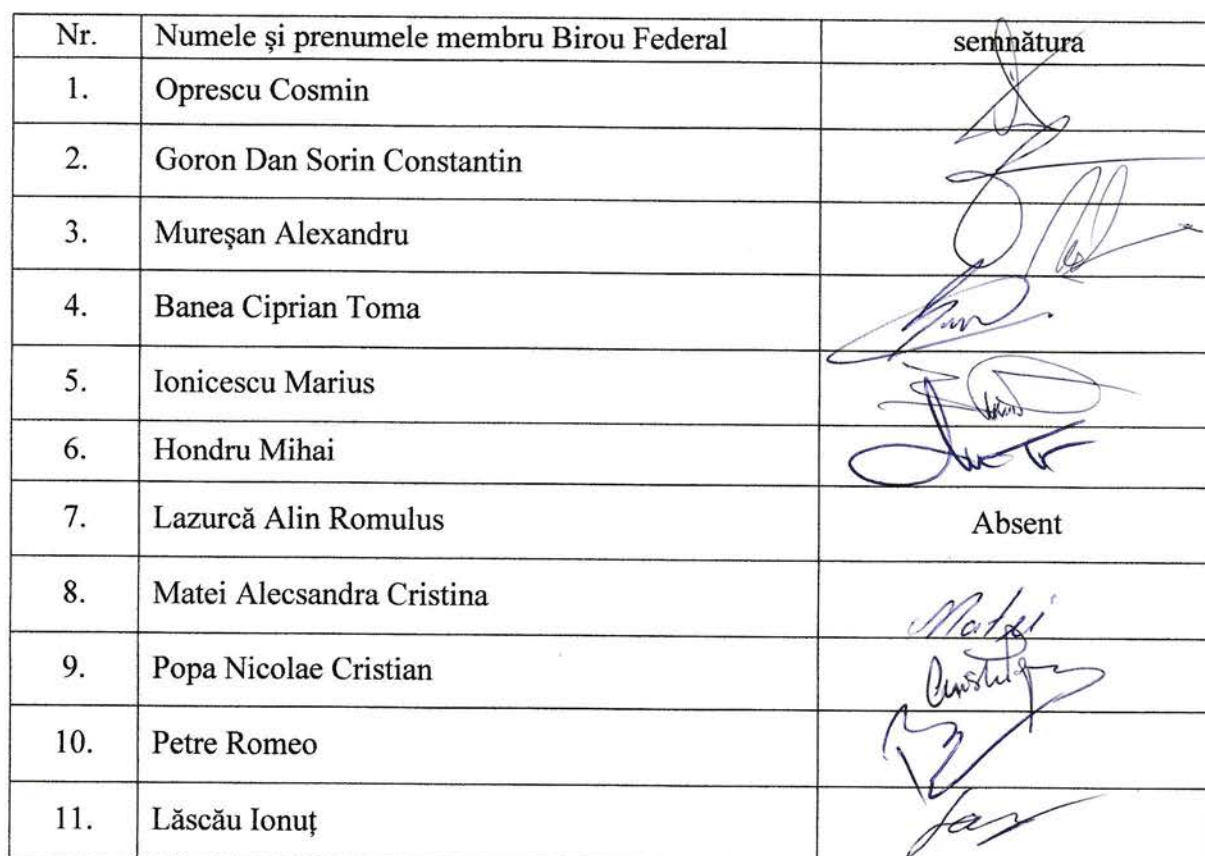 Nr. Numele și prenumele membru Birou Federal semnătura
1. Oprescu Cosmin
2. Goron Dan Sorin Constantin
3. Mureșan Alexandru
4. Banea Ciprian Toma
5. Ionicescu Marius
6. Hondru Mihai
7. Lazurcă Alin Romulus Absent
8. Matei Alecsandra Cristina Matei
9. Popa Nicolae Cristian
10. Petre Romeo
11. Lăscău Ionuț